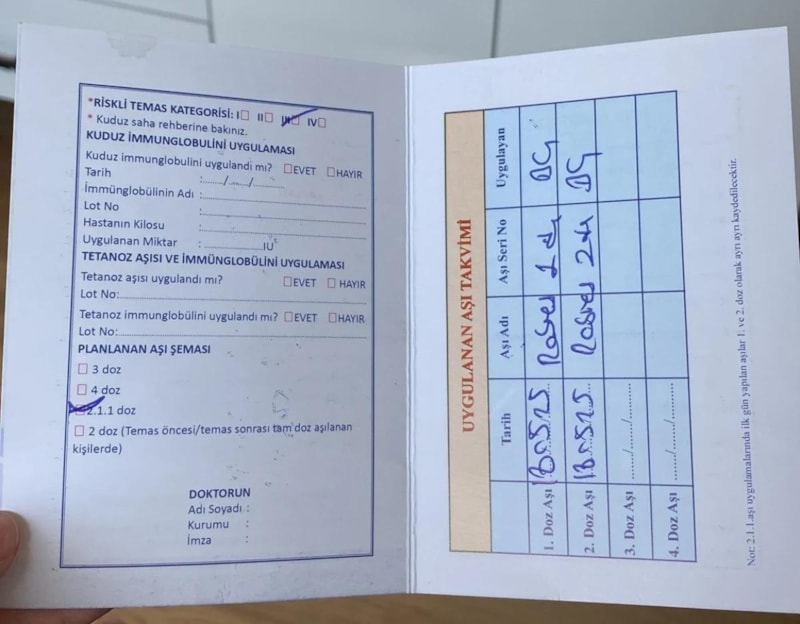 *RİSKLİ TEMAS KATEGORİSİ: I☐ II☐ III☐ IV☐
* Kuduz saha rehberine bakınız.
KUDUZ İMMUNGLOBULİNİ UYGULAMASI
Kuduz immunglobulini uygulandı mı? ☐EVET ☐HAYIR
Tarih :....../....../......
İmmünglobülinin Adı :
Lot No :
Hastanın Kilosu :
Uygulanan Miktar : ............IU
TETANOZ AŞISI VE İMMÜNGLOBÜLİNİ UYGULAMASI
Tetanoz aşısı uygulandı mı? ☐EVET ☐ HAYIR
Lot No:
Tetanoz immunglobülini uygulandı mı? ☐EVET ☐HAYIR
Lot No:
PLANLANAN AŞI ŞEMASI
☐ 3 doz
☐ 4 doz
☐ 2.1.1 doz
☐ 2 doz (Temas öncesi/temas sonrası tam doz aşılanan
kişilerde)
DOKTORUN
Adı Soyadı :
Kurumu :
İmza :
UYGULANAN AŞI TAKVİMİ
Tarih Aşı Adı Aşı Seri No Uygulayan
1. Doz Aşı
2. Doz Aşı
3. Doz Aşı ....../....../......
4. Doz Aşı ....../....../......
Not: 2.1.1.aşı uygulamalarında ilk gün yapılan aşılar 1. ve 2. doz olarak ayrı ayrı kaydedilecektir.